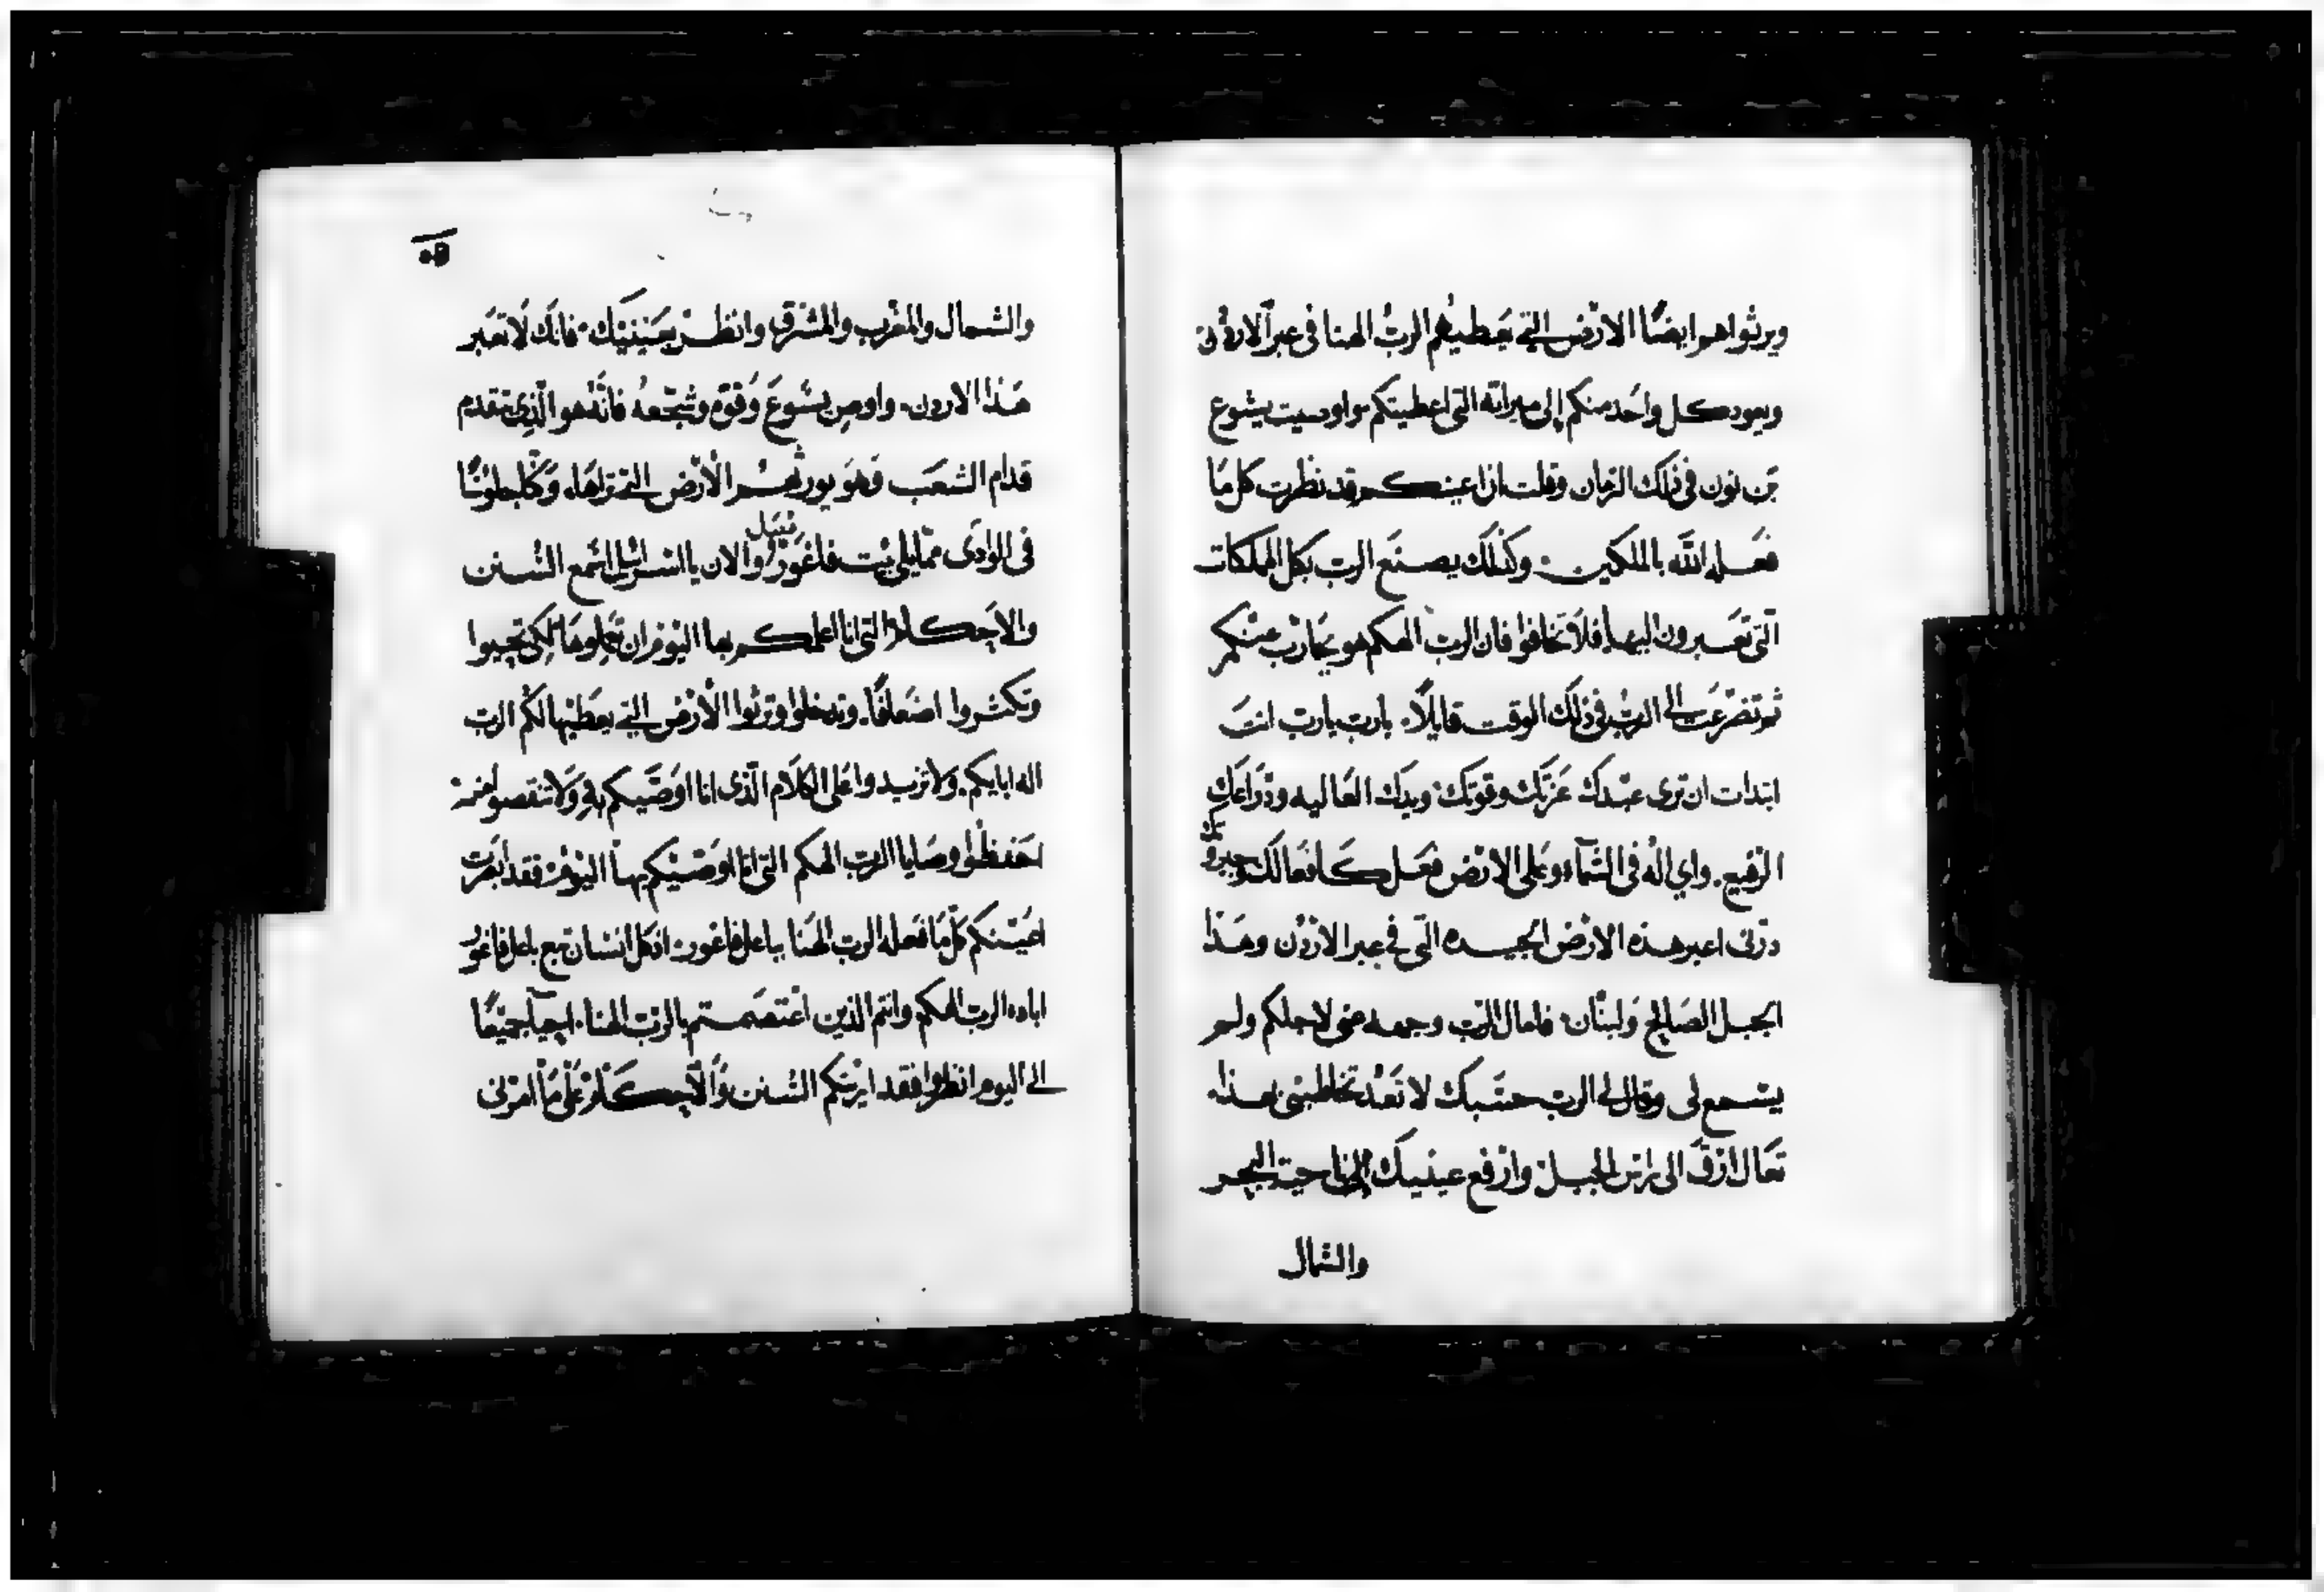 ويرثوا هم ايضًا الارض التي يعطيهم الربُّ الهنا في عبر الاردن
ويعود كل واحد منكم إلى ميراثه التي اعطيتكم واوصيت يشوع
بن نون في ذلك الزمان وقلت ان اعينكم قد نظرت كل ما
فعله الله بالملكين وكذلك يصنع الرب بكل المملكات
التي تعبرون اليها فلا تخافوا فان الرب الهكم هو يحارب عنكم
ثم تضرعت إلى الرب في ذلك الوقت قايلًا يا رب يا رب انت
ابتدات ان ترى عبدك عزتك وقوتك ويدك العاليه وذراعك
الرفيع واي اله في السماء وعلى الارض فعل كافعالك وجبروتك
دعني اعبر هذه الارض الجيده التي في عبر الاردن وهذا
الجبل الصالح ولبنان فامال الرب وجهه عني لاجلكم ولم
يسمع لي وقال لي الرب حسبك لا تعد تخاطبني بهذا
تعال ارق الى راس الجبل وارفع عينيك إلى ناحية البحر
والشمال
والشمال والمغرب والمشرق وانظر بعينيك فانك لا تعبر
هذا الاردن واوص يشوع وقوه وشجعه فانه هو الذي يتقدم
قدام الشعب وهو يورثهم الارض التي تراها وكنا جلوسًا
في الوادى مما يلي بيت فاغور والان يا اسرائيل اسمع السنن
والاحكام التي انا اعلمكم بها اليوم ان تعملوها لكي تحيوا
وتكثروا اضعافًا وتدخلوا وترثوا الارض التي يعطيها لكم الرب
اله ابايكم ولا تزيدوا على الكلام الذى انا اوصيكم به ولا تنقصوا منه
احفظوا وصايا الرب الهكم التي انا اوصيكم بها اليوم فقد ابصرت
اعينكم كل ما فعله الرب الهنا بباعل فاغور اذ كل انسان تبع باعل فاغور
اباده الرب الهكم وانتم الذين اعتصمتم بالرب الهنا احيا جميعًا
إلى اليوم انظروا فقد اريتكم السنن والاحكام على ما امرني